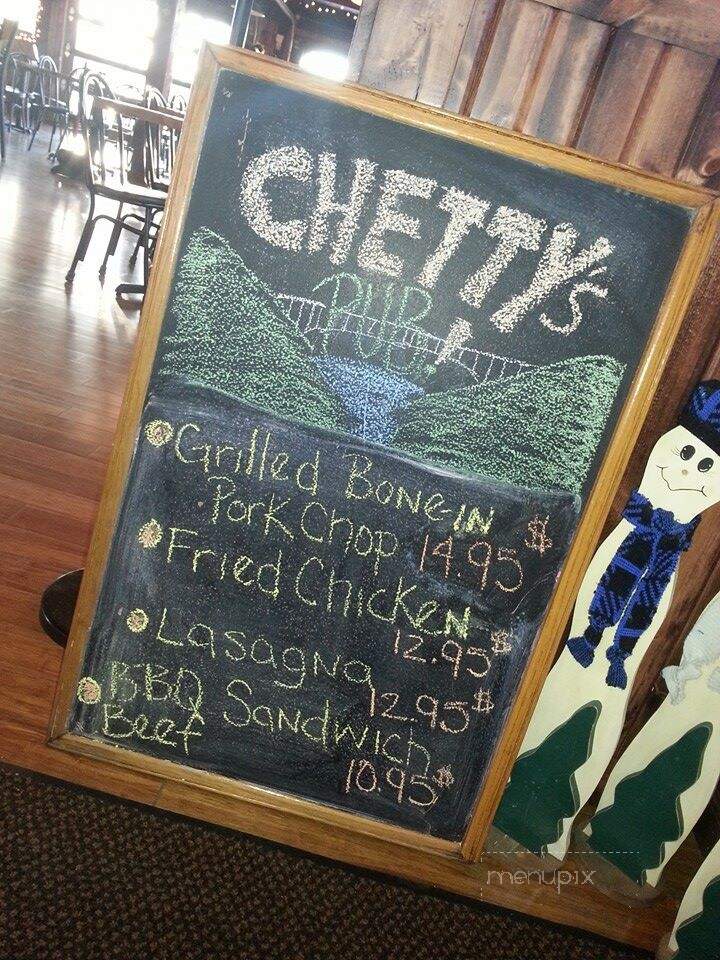 CHETTY's
PUB!
Grilled Bone-IN
Pork Chop 14.95$
Fried Chicken
12.95$
Lasagna
12.95$
BBQ Sandwich
Beef
10.95$
menupix